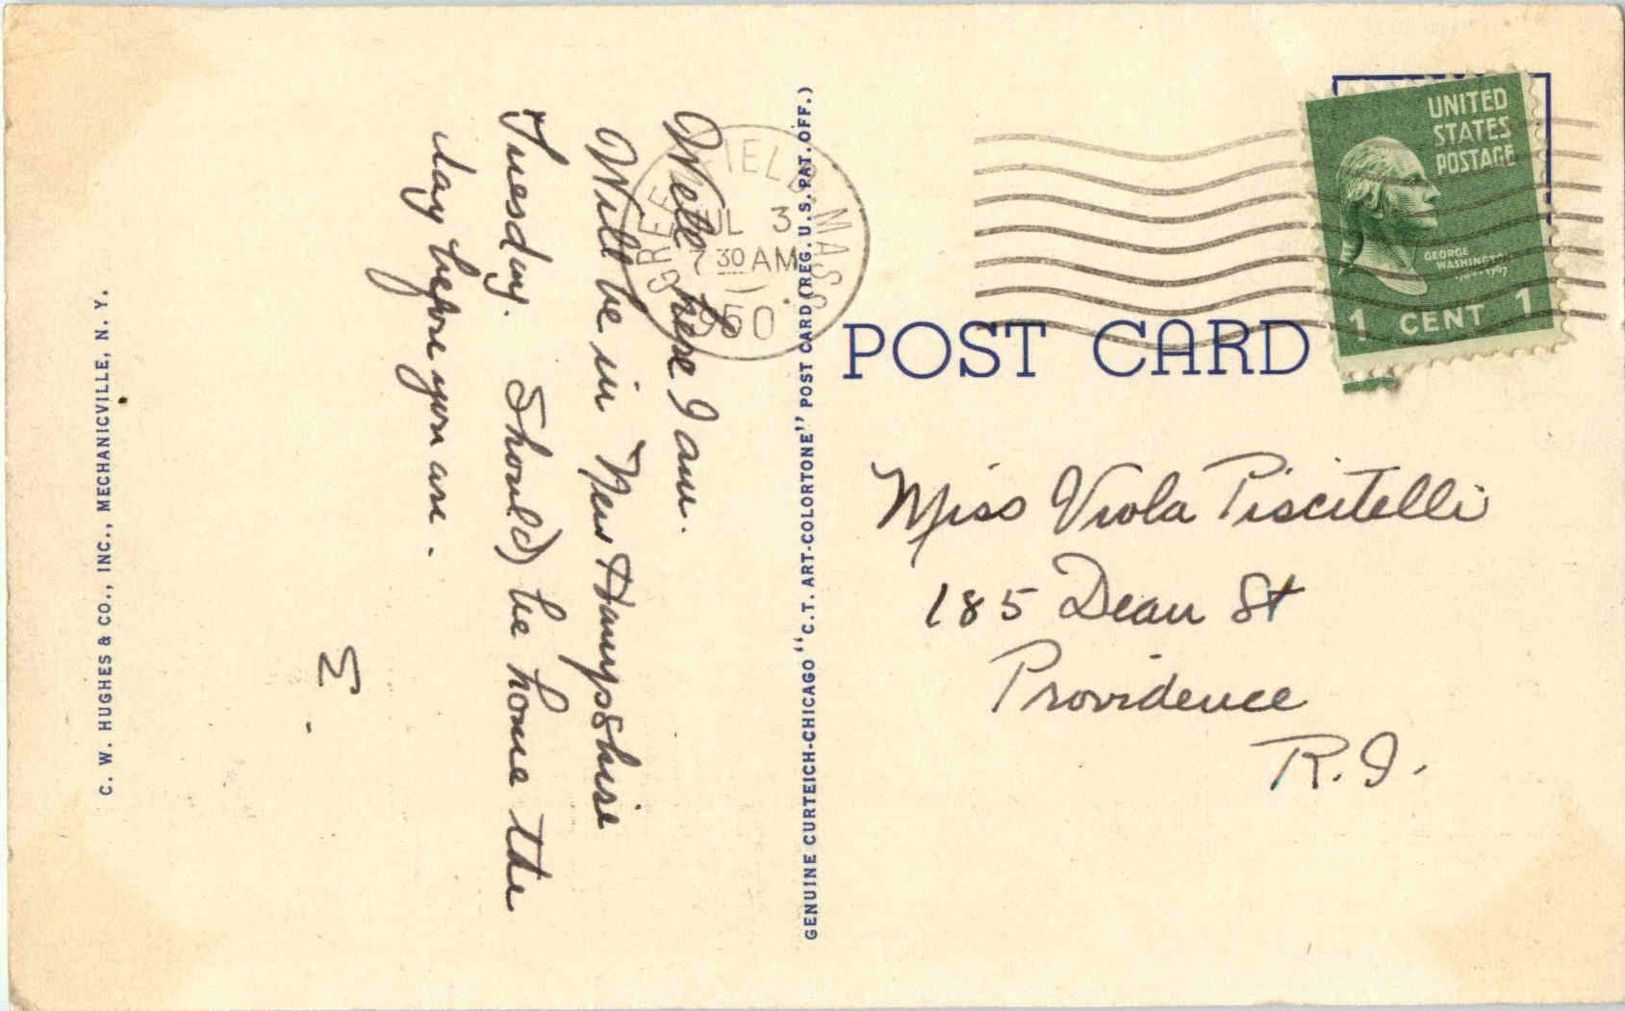 Well here I am.
Will be in New Hampshire
Tuesday. Should be home the
day before you are.
E.
GREENFIELD MASS
JUL 3
7 30 AM
1950
UNITED
STATES
POSTAGE
GEORGE
WASHINGTON
1789-1797
1 CENT 1
POST CARD
Miss Viola Piscitelli
185 Dean St
Providence
R.I.
GENUINE CURTEICH-CHICAGO "C.T. ART-COLORTONE" POST CARD (REG. U.S. PAT. OFF.)
C. W. HUGHES & CO., INC., MECHANICVILLE, N. Y.